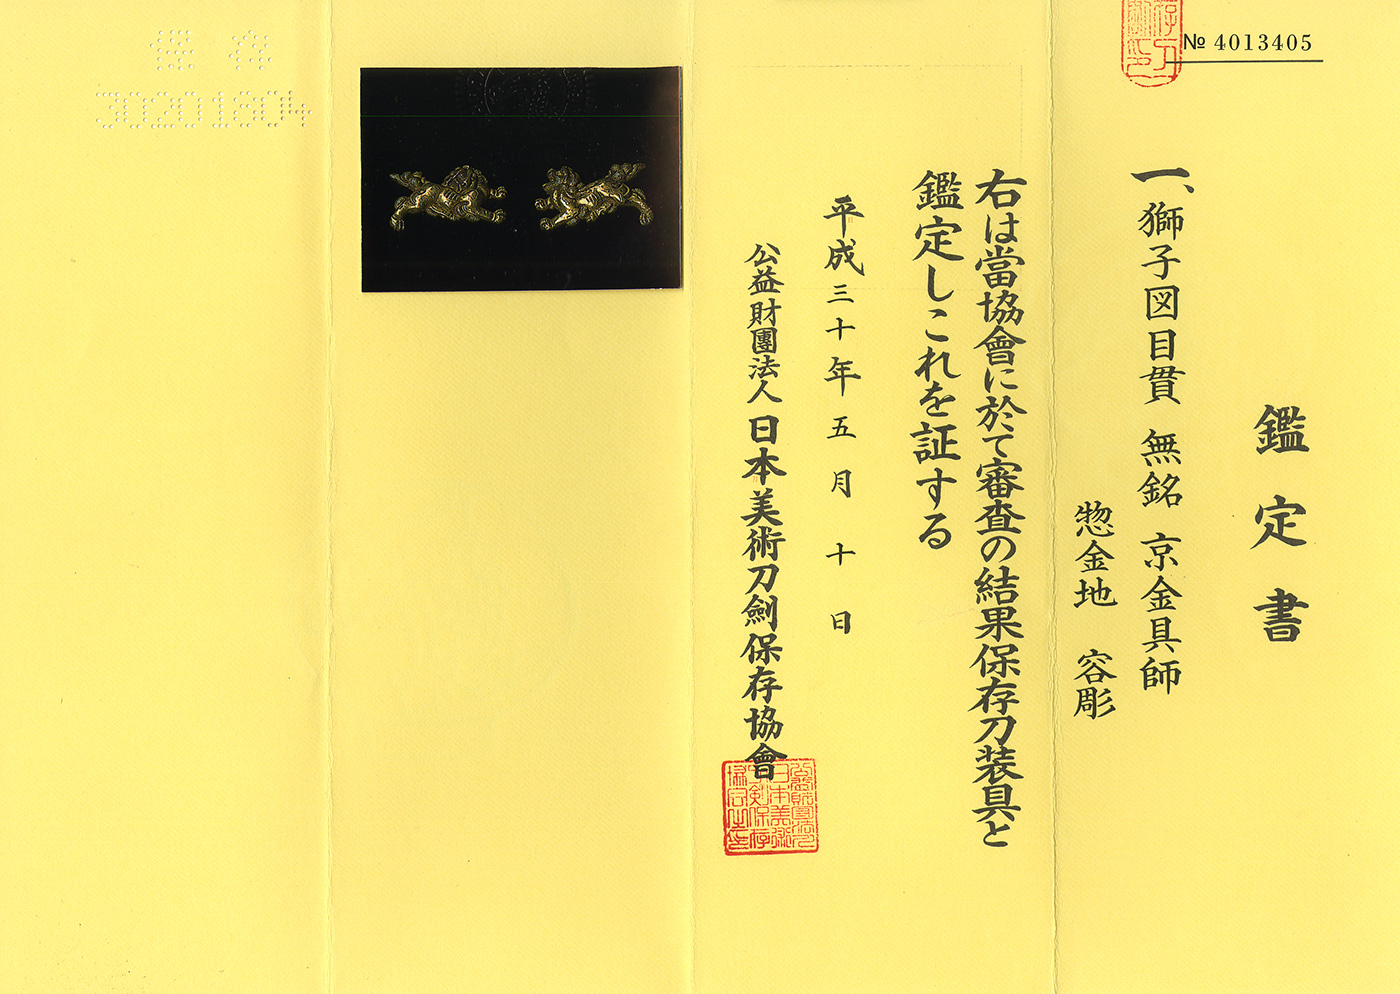 № 4013405
鑑定書
一、獅子図目貫 無銘 京金具師
惣金地 容彫
右は當協會に於て審査の結果保存刀装具と
鑑定しこれを証する
平成三十年五月十日
公益財團法人 日本美術刀劍保存協會
30201804